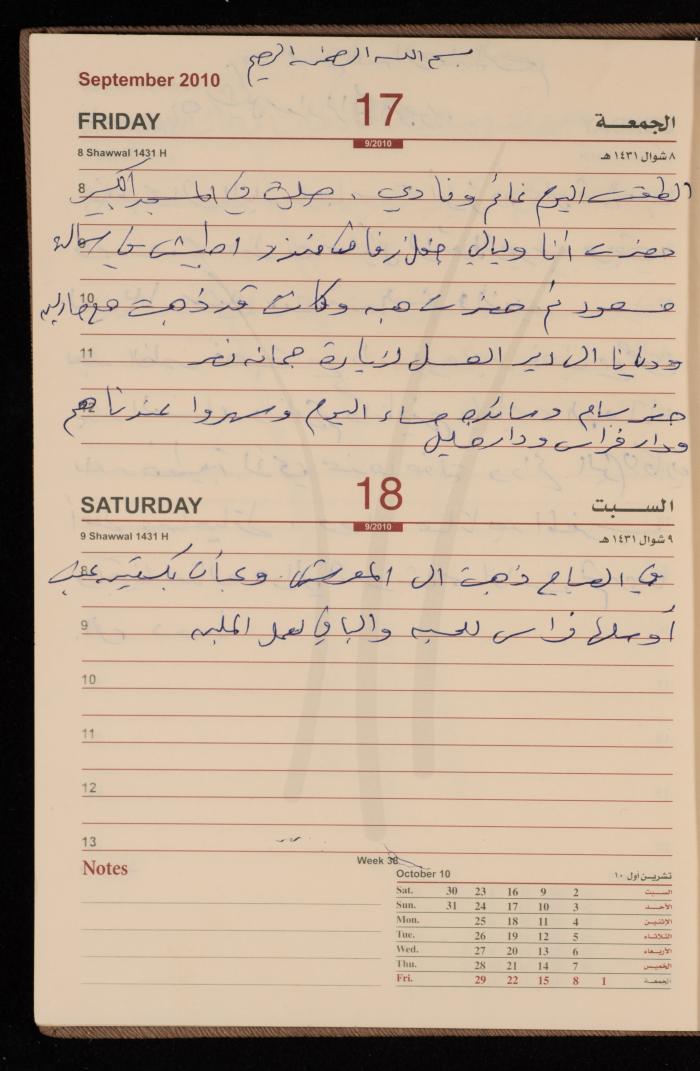 بسم الله الرحمن الرحيم
September 2010
FRIDAY 17 الجمعـــة
9/2010
8 Shawwal 1431 H ٨ شوال ١٤٣١ هـ
8 الطقس اليوم غائم وعادي . صليت في المسجد الكبير
حضرت أنا وليالي حفل زفاف في صالة
10 مسعود ثم حضرت هبه وكانت قد ذهبت مع
11 ودعانا ال دير العسل لزيارة جمانه نصر
حضر بسام وعائلته مساء اليوم وسهروا عندنا هم
ودار فراس ودار
SATURDAY 18 الســـبت
9/2010
9 Shawwal 1431 H ٩ شوال ١٤٣١ هـ
8 في الصباح ذهبت ال المعرش وعبأت بكستين عنب
9 أوصلها فراس للحسبه والباقي لعمل الملبن
10
11
12
13
Notes
Week 38
October 10 تشريـن أول ١٠
Sat. 30 23 16 9 2 السـبت
Sun. 31 24 17 10 3 الأحـد
Mon. 25 18 11 4 الإثنيـن
Tue. 26 19 12 5 الثلاثـاء
Wed. 27 20 13 6 الأربعـاء
Thu. 28 21 14 7 الخميـس
Fri. 29 22 15 8 1 الجمعـة